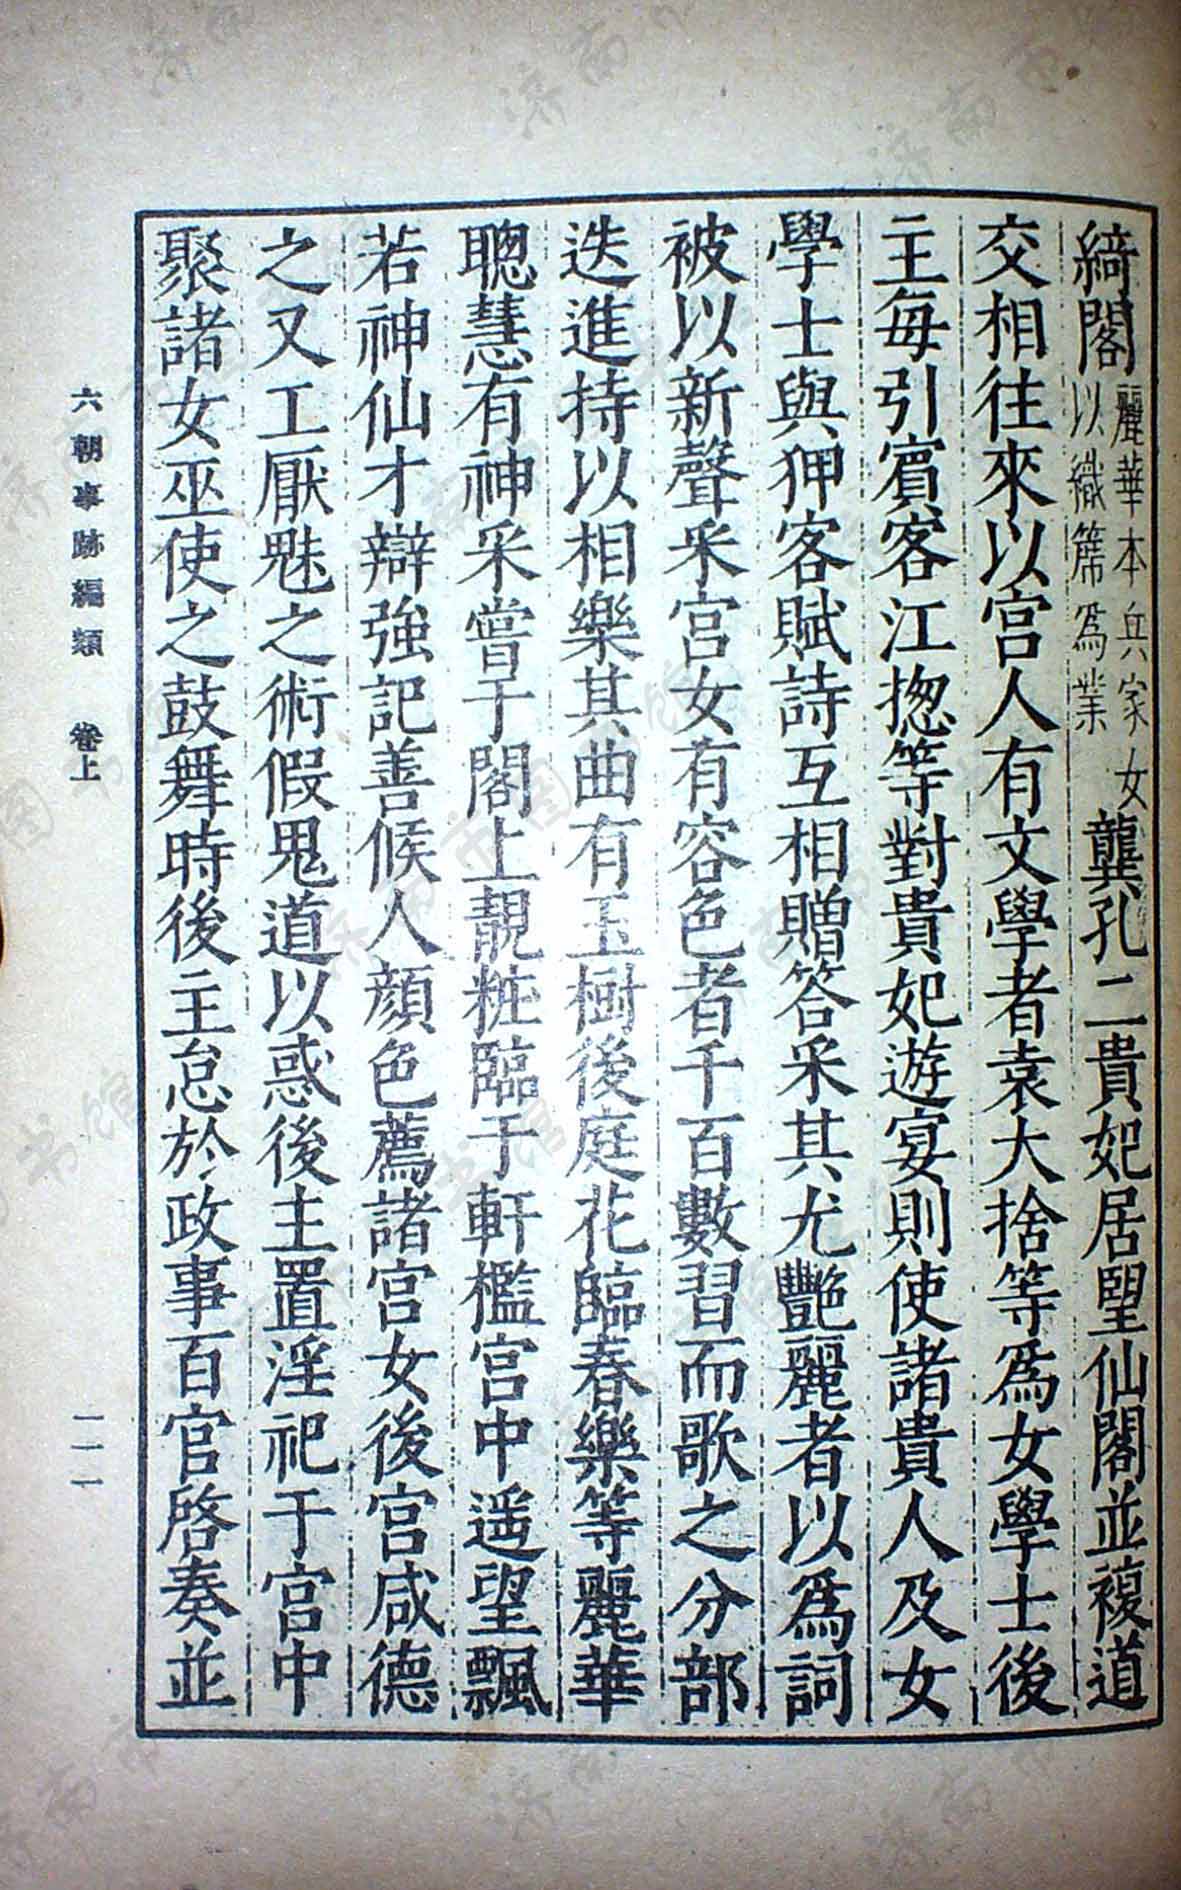 綺閣麗華本兵家女以織席爲業龔孔二貴妃居朢仙閣並複道
交相往來以宮人有文學者袁大捨等爲女學士後
主每引賓客江揔等對貴妃遊宴則使諸貴人及女
學士與狎客賦詩互相贈答采其尤艷麗者以爲詞
被以新聲采宮女有容色者千百數習而歌之分部
迭進持以相樂其曲有玉樹後庭花臨春樂等麗華
聰慧有神采嘗于閣上靚粧臨于軒檻宮中遥望飄
若神仙才辯強記善候人顔色薦諸宮女後宮咸德
之又工厭魅之術假鬼道以惑後主置淫祀于宮中
聚諸女巫使之鼓舞時後主怠於政事百官啓奏並
六朝事跡編類 卷上
一一一
济南市图书馆